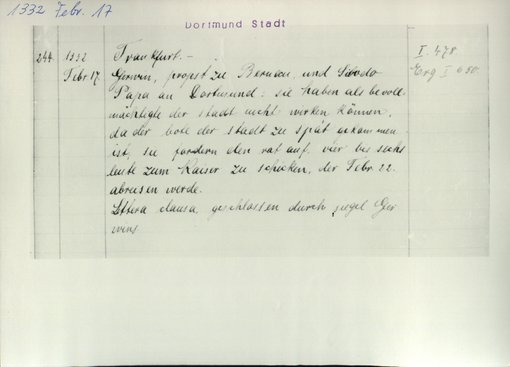 1332 Febr. 17
Dortmund Stadt
244 1332 Frankfurt. – I. 478
Febr. 17. Gerwin, propst zu und Papa an Dortmund: sie haben als bevoll Erg I 650.
mächtigte der stadt nicht wirken können,
da der bote der stadt zu spät gekommen
ist, sie fordern den rat auf, vier bis sechs
leute zum Kaiser zu schicken, der Febr. 22.
abreisen werde.
Littera clausa, geschlossen durch siegel Ger
wins